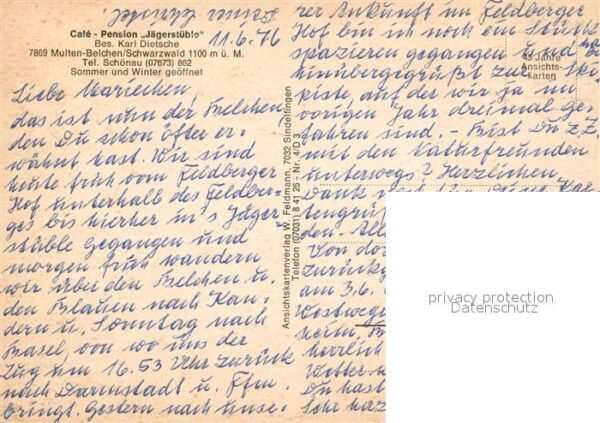 Café - Pension „Jägerstüble"
Bes. Karl Dietsche
7869 Multen-Belchen/Schwarzwald 1100 m ü. M.
Tel. Schönau (07673) 862
Sommer und Winter geöffnet
11.6.76
Liebe Mariechen,
das ist nun der Belchen,
den Du schon öfter er-
wähnt hast. Wir sind
heute früh vom Feldberger
Hof unterhalb des Feldber-
ges bis hierher in's Jäger-
stüble gegangen und
morgen früh wandern
wir über den Belchen u.
den Blauen nach Kan-
dern u. Sonntag nach
Basel, von wo uns der
Zug um 16.53 Uhr zurück
nach Darmstadt u. Ffm.
bringt. Gestern nach unse-
rer Ankunft im Feldberger
Hof bin ich noch ein Stück
spazieren gegangen und habe
hinübergegrüßt zur Ski-
piste, auf der wir ja im
vorigen Jahr dreimal ge-
fahren sind. - Bist Du z.Z.
mit den Naturfreunden
unterwegs? Herzlichen
Dank
tengrüß
den. - All
Von dor
zurückg
am 3.6.
Westwege
heim,
herrlich
Wetter
Du hast
Sehr herz
45 Jahre
Ansichts-
karten
Ansichtskartenverlag W. Feldmann, 7032 Sindelfingen
Telefon (07031) 8 41 25 - Nr. 4/D 3
privacy protection
Datenschutz